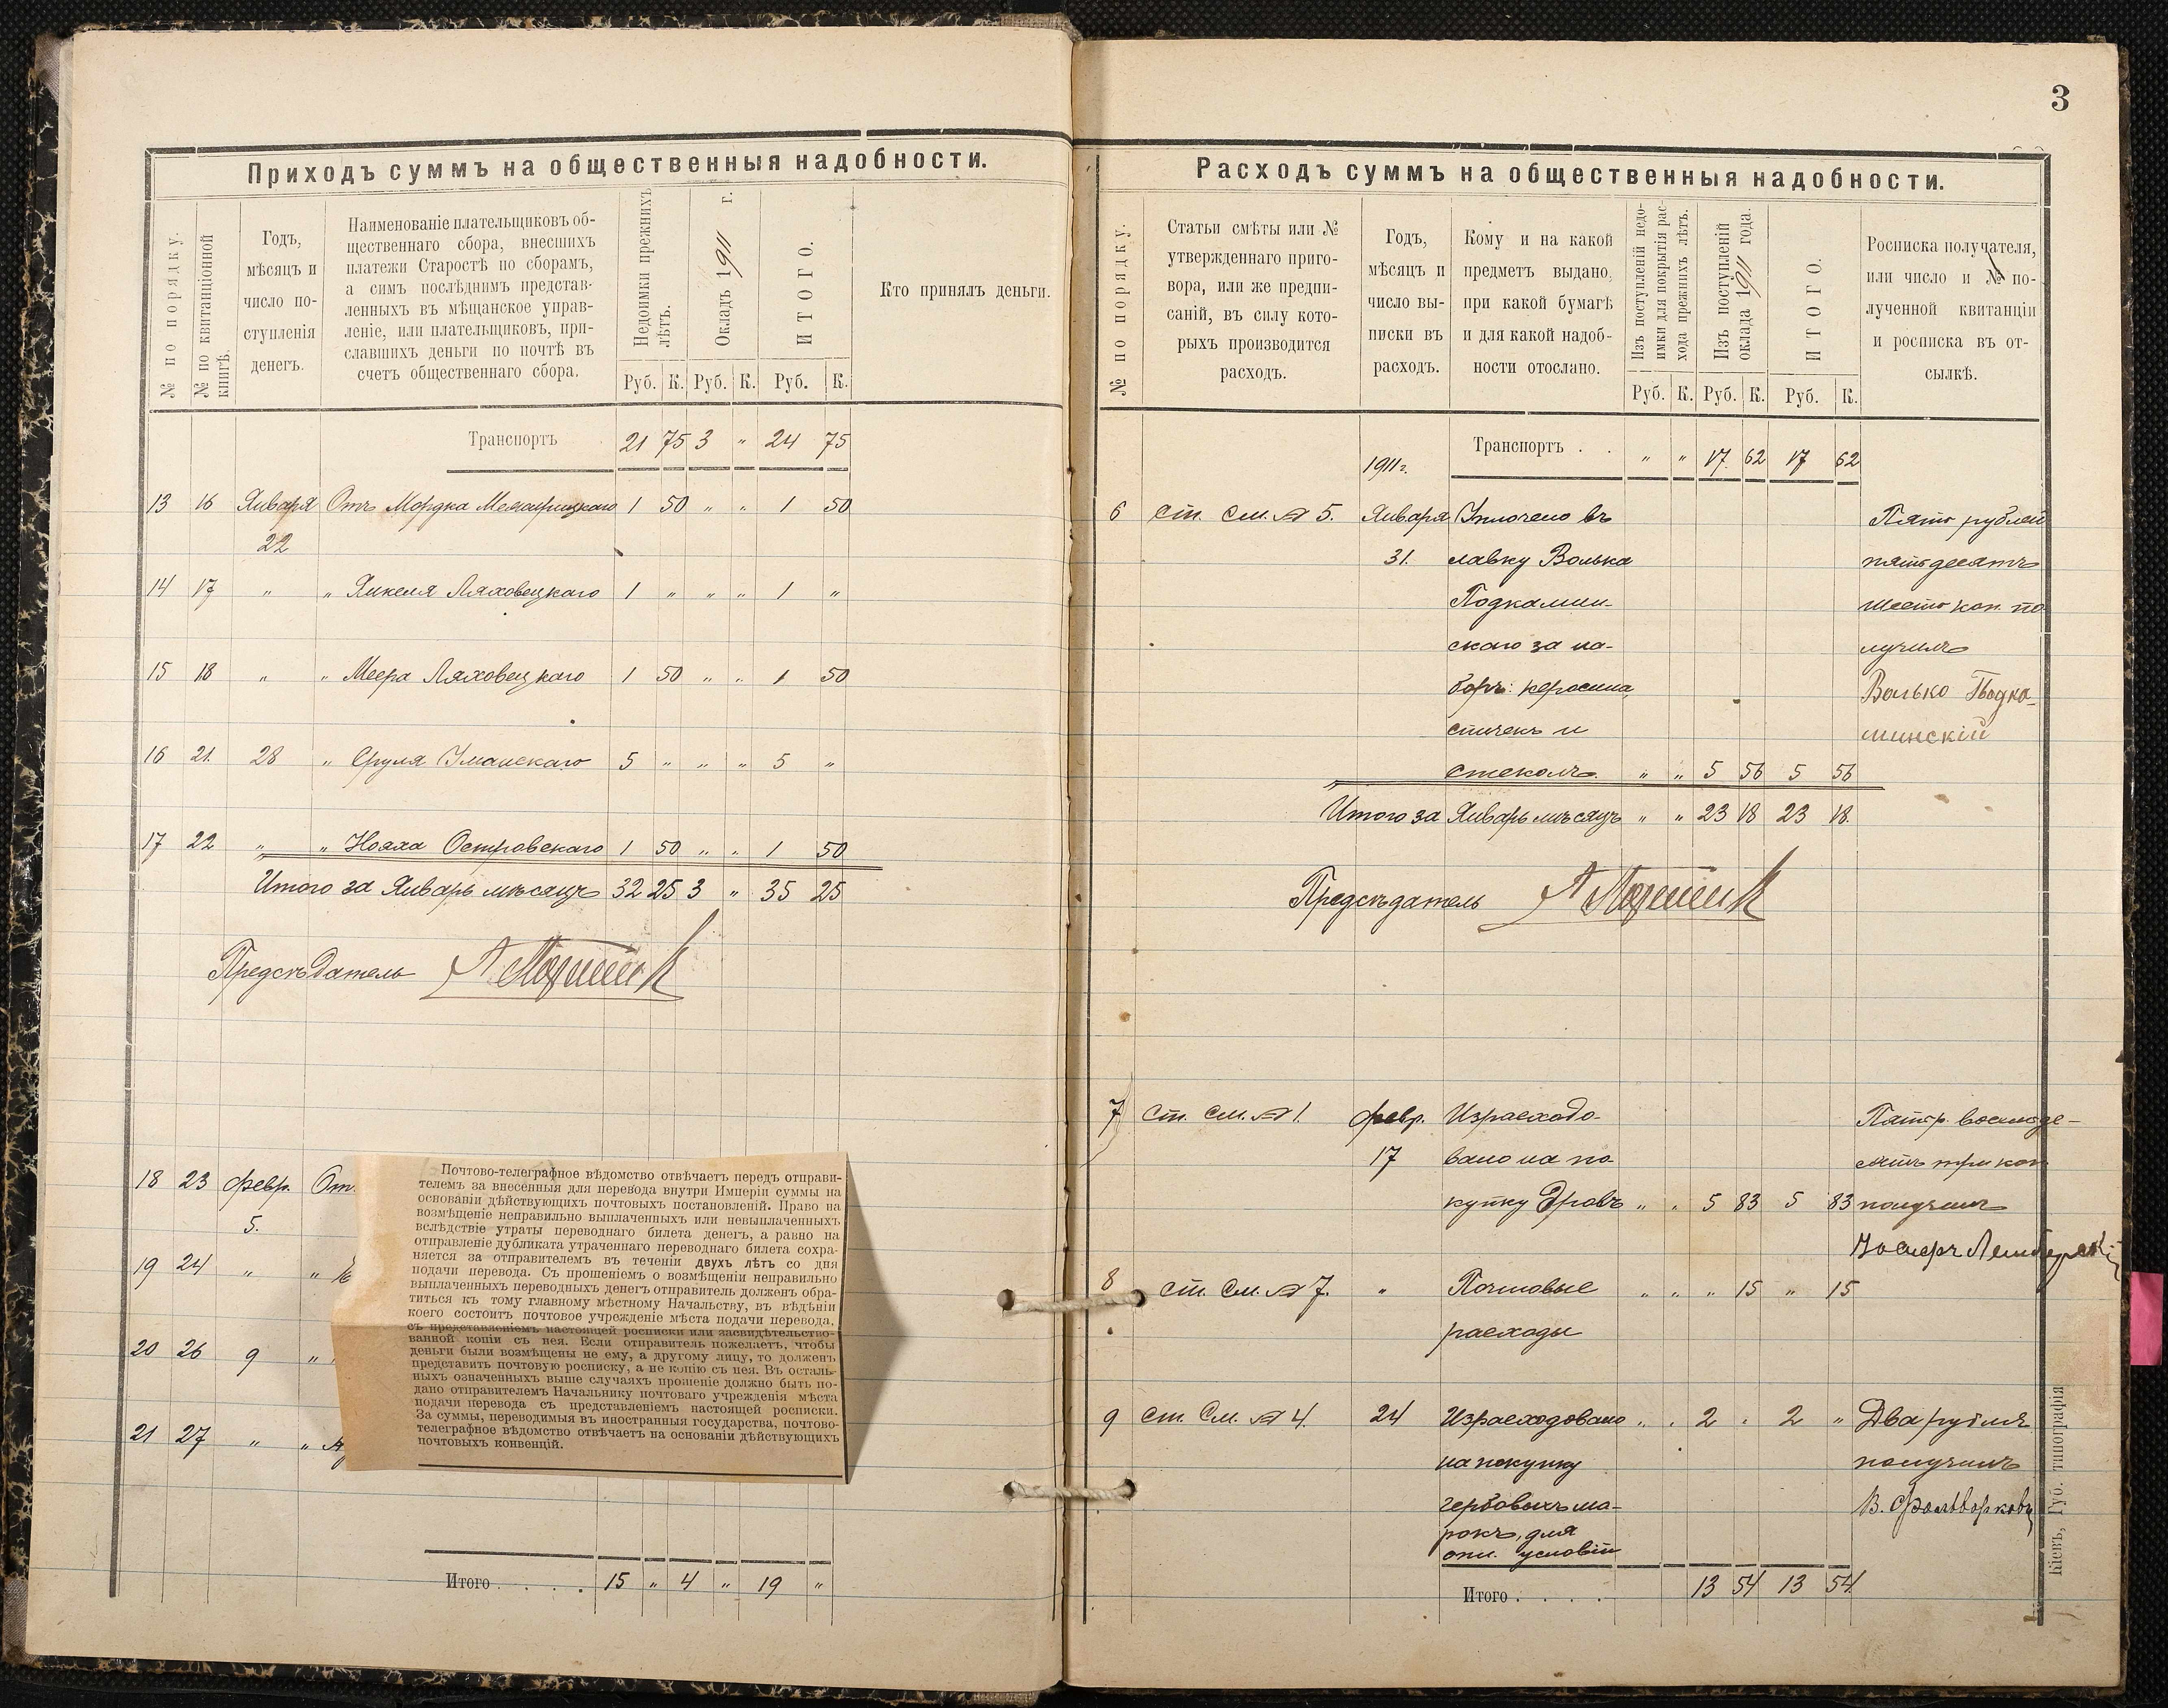 3
Приходъ суммъ на общественныя надобности.
№ по порядку.
№ по квитанціонной
книгѣ.
Годъ,
мѣсяцъ и
число по-
ступленія
денегъ.
Наименованіе плательщиковъ об-
щественнаго сбора, внесшихъ
платежи Старостѣ по сборамъ,
а симъ послѣднимъ представ-
ленныхъ въ мѣщанское управ-
леніе, или плательщиковъ, при-
славшихъ деньги по почтѣ въ
счетъ общественнаго сбора.
Недоимки прежнихъ
лѣтъ.
Окладъ 1911 г.
ИТОГО.
Кто принялъ деньги.
Руб. К. Руб. К. Руб. К.
Транспортъ 21 75 3 " 24 75
13 16 Января Отъ Мордка 1 50 " " 1 50
22
14 17 " " Янкеля Ляховецкаго 1 " " " 1 "
15 18 " " Меера Ляховецкаго 1 50 " " 1 50
16 21. 28 " Сруля Уманскаго 5 " " " 5 "
17 22 " " Нояха Островскаго 1 50 " " 1 50
Итого за Январь мѣсяцъ 32 25 3 " 35 25
Предсѣдатель
18 23 февр. От
5.
19 24 " "
20 26 9 "
21 27 " "
Почтово-телеграфное вѣдомство отвѣчаетъ передъ отправи-
телемъ за внесенныя для перевода внутри Имперіи суммы на
основаніи дѣйствующихъ почтовыхъ постановленій. Право на
возмѣщеніе неправильно выплаченныхъ или невыплаченныхъ
вслѣдствіе утраты переводнаго билета денегъ, а равно на
отправленіе дубликата утраченнаго переводнаго билета сохра-
няется за отправителемъ въ теченіи двухъ лѣтъ со дня
подачи перевода. Съ прошеніемъ о возмѣщеніи неправильно
выплаченныхъ переводныхъ денегъ отправитель долженъ обра-
титься къ тому главному мѣстному Начальству, въ вѣдѣніи
коего состоитъ почтовое учрежденіе мѣста подачи перевода,
съ представленіемъ настоящей росписки или засвидѣтельство-
ванной копіи съ нея. Если отправитель пожелаетъ, чтобы
деньги были возмѣщены не ему, а другому лицу, то долженъ
представить почтовую росписку, а не копію съ нея. Въ осталь-
ныхъ означенныхъ выше случаяхъ прошеніе должно быть по-
дано отправителемъ Начальнику почтоваго учрежденія мѣста
подачи перевода съ представленіемъ настоящей росписки.
За суммы, переводимыя въ иностранныя государства, почтово-
телеграфное вѣдомство отвѣчаетъ на основаніи дѣйствующихъ
почтовыхъ конвенцій.
Итого . . . . 15 " 4 " 19 "
Расходъ суммъ на общественныя надобности.
№ по порядку.
Статьи смѣты или №
утвержденнаго приго-
вора, или же предпи-
саній, въ силу кото-
рыхъ производится
расходъ.
Годъ,
мѣсяцъ и
число вы-
писки въ
расходъ.
Кому и на какой
предметъ выдано,
при какой бумагѣ
и для какой надоб-
ности отослано.
Изъ поступленій недо-
имки для покрытія рас-
хода прежнихъ лѣтъ.
Изъ поступленій
оклада 1911 года.
ИТОГО.
Росписка получателя,
или число и № по-
лученной квитанціи
и росписка въ от-
сылкѣ.
Руб. К. Руб. К. Руб. К.
1911 г. Транспортъ . . " " 17 62 17 62
6 ст. См. № 5. Января Уплочено въ Пять рублей
31. лавку Волька пятьдесятъ
Подкамин- шесть коп. по
скаго за на- лучилъ
боръ: керосина Волько Подка-
спичекъ и минскій
стеколъ. " " 5 56 5 56
Итого за Январь мѣсяцъ " " 23 18 23 18.
Предсѣдатель
7 ст. См. № 1. февр. Израсходо- Пять р. восемьде-
17 вано на по сятъ три коп
купку дровъ " " 5 83 5 83 получилъ
8 ст. См. № 7. " Почтовые " " " 15 " 15
расходы
9 ст. См. № 4. 24 Израсходовано " " 2 " 2 " Два рубля
на покупку получилъ
гербовыхъ ма- В.
рокъ, для
условій
Итого . . . . 13 54 13 54
Кіевъ, Губ. типографія